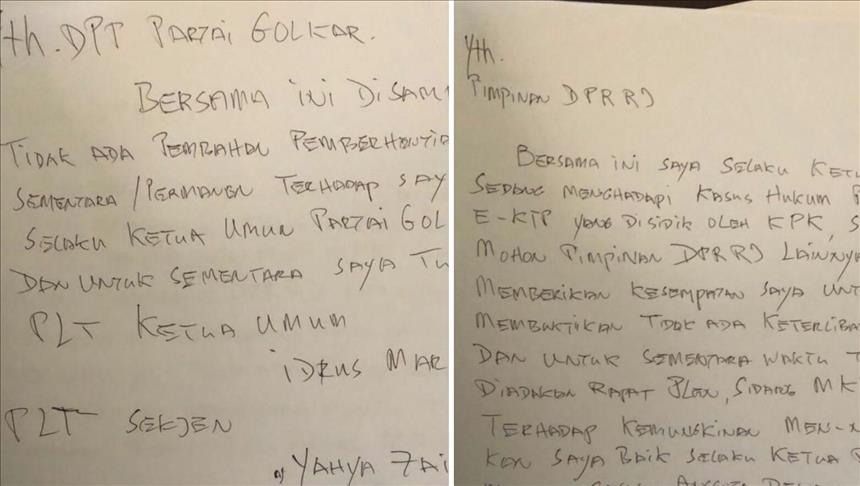 Yth. DPT PARTAI GOLKAR.
BERSAMA INI DISAM
TIDAK ADA PEMBAHAN PEMBERHONTIA
SEMENTARA / PERMANEN TERHADAP SAY
SELAKU KETUA UMUM PARTAI GOL
DAN UNTUK SEMENTARA SAYA TU
PLT KETUA UMUM
IDRUS MAR
PLT SEKJEN
YAHYA ZAI
Yth.
PIMPINAN DPR RI
BERSAMA INI SAYA SELAKU KETU
SEDANG MENGHADAPI KASUS HUKUM
E-KTP YANG DISIDIK OLEH KPK, S
MOHON PIMPINAN DPR RI LAINNYA
MEMBERIKAN KESEMPATAN SAYA UNT
MEMBUKTIKAN TIDAK ADA KETERLIBA
DAN UNTUK SEMENTARA WAKTU T
DIADAKAN RAPAT PLENO, SIDANG MK
TERHADAP KEMUNGKINAN MEN-N
KAN SAYA BAIK SELAKU KETUA